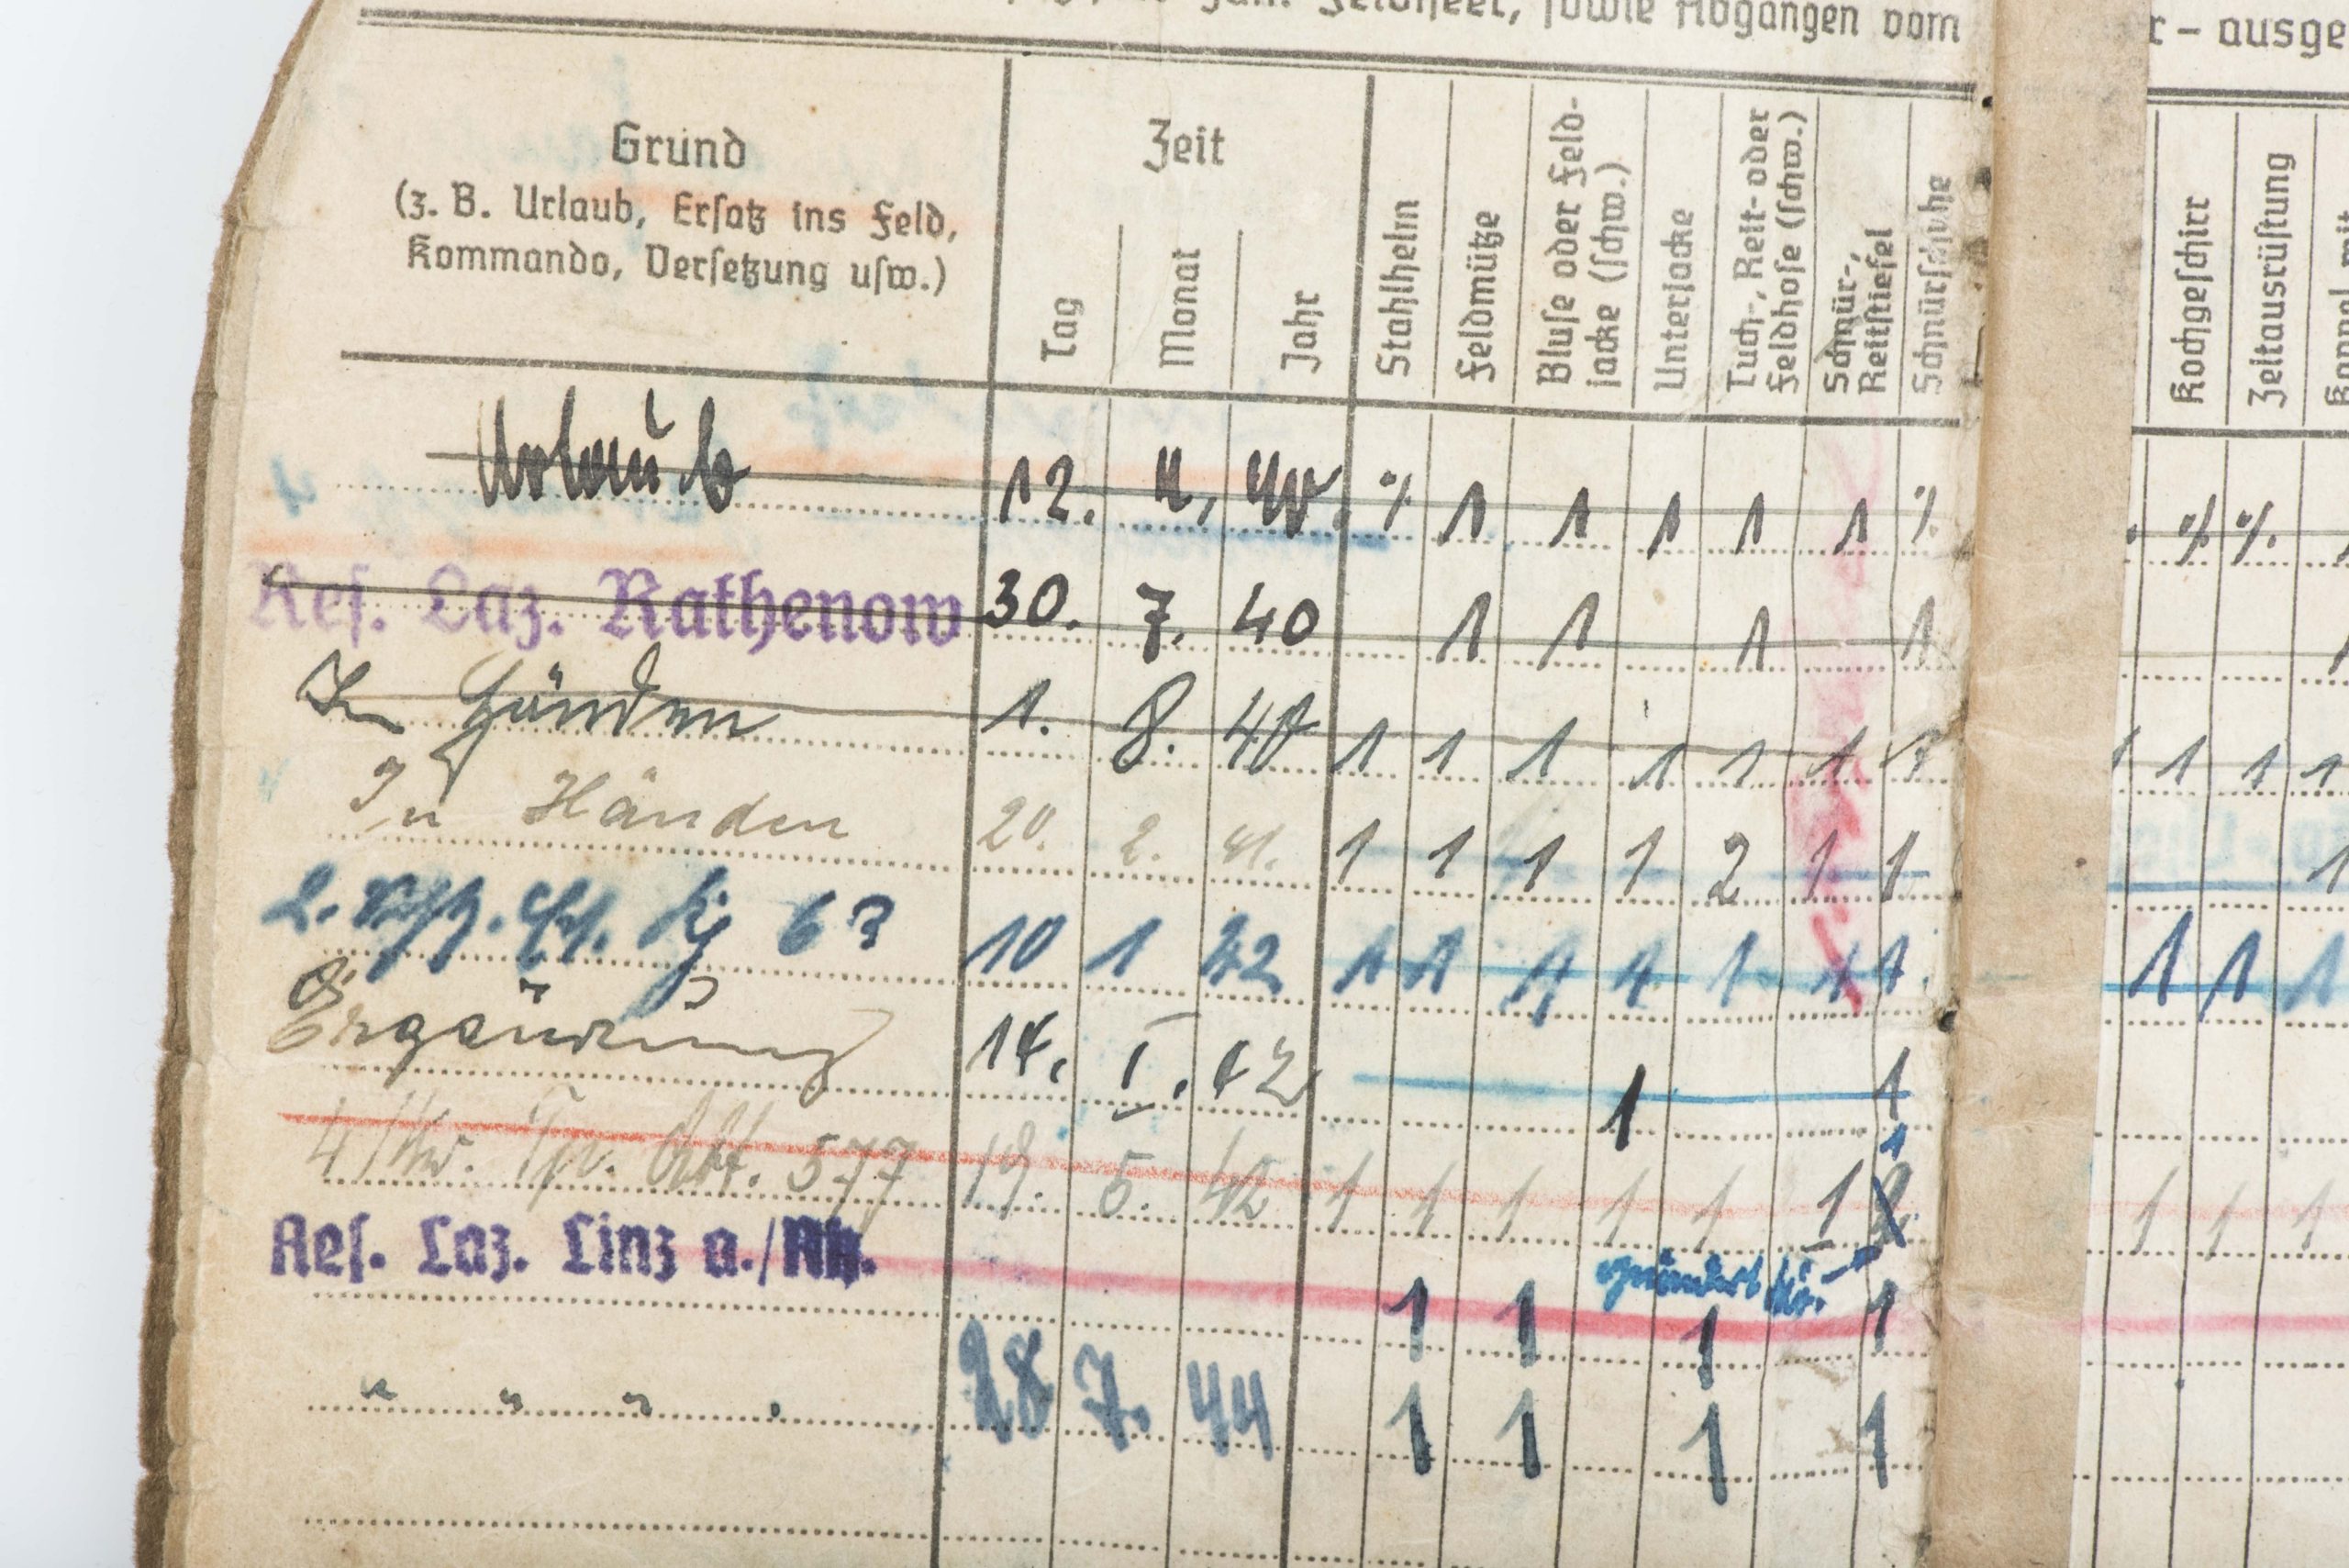 Feldheer, sowie Abgängen vom
r – ausge
Grund
(z. B. Urlaub, Ersatz ins Feld,
Kommando, Versetzung usw.)
Zeit
Tag
Monat
Jahr
Stahlhelm
Feldmütze
Bluse oder Feld-
jacke (schw.)
Unterjacke
Tuch-, Reit- oder
Feldhose (schw.)
Schnür-,
Reitstiefel
Schnürschuhe
Kochgeschirr
Zeltausrüstung
Koppel mit
Urlaub 12. 4. 40. % 1 1 1 1 1 % % %
Res. Laz. Rathenow 30. 7. 40 1 1 1 1
In Händen 1. 8. 40 1 1 1 1 1 1 1 1 1 1
In Händen 20. 2. 41. 1 1 1 1 2 1 1 1
2. 10 1 42 1 1 1 1 1 1 1 1 1 1
Ergänzung 14. I. 42 1 1
4 577 19. 5. 42 1 1 1 1 1 1 1 1 1 1
Res. Laz. Linz a./Rh. geändert 1 1 1 1
" " " 28 7. 44 1 1 1 1